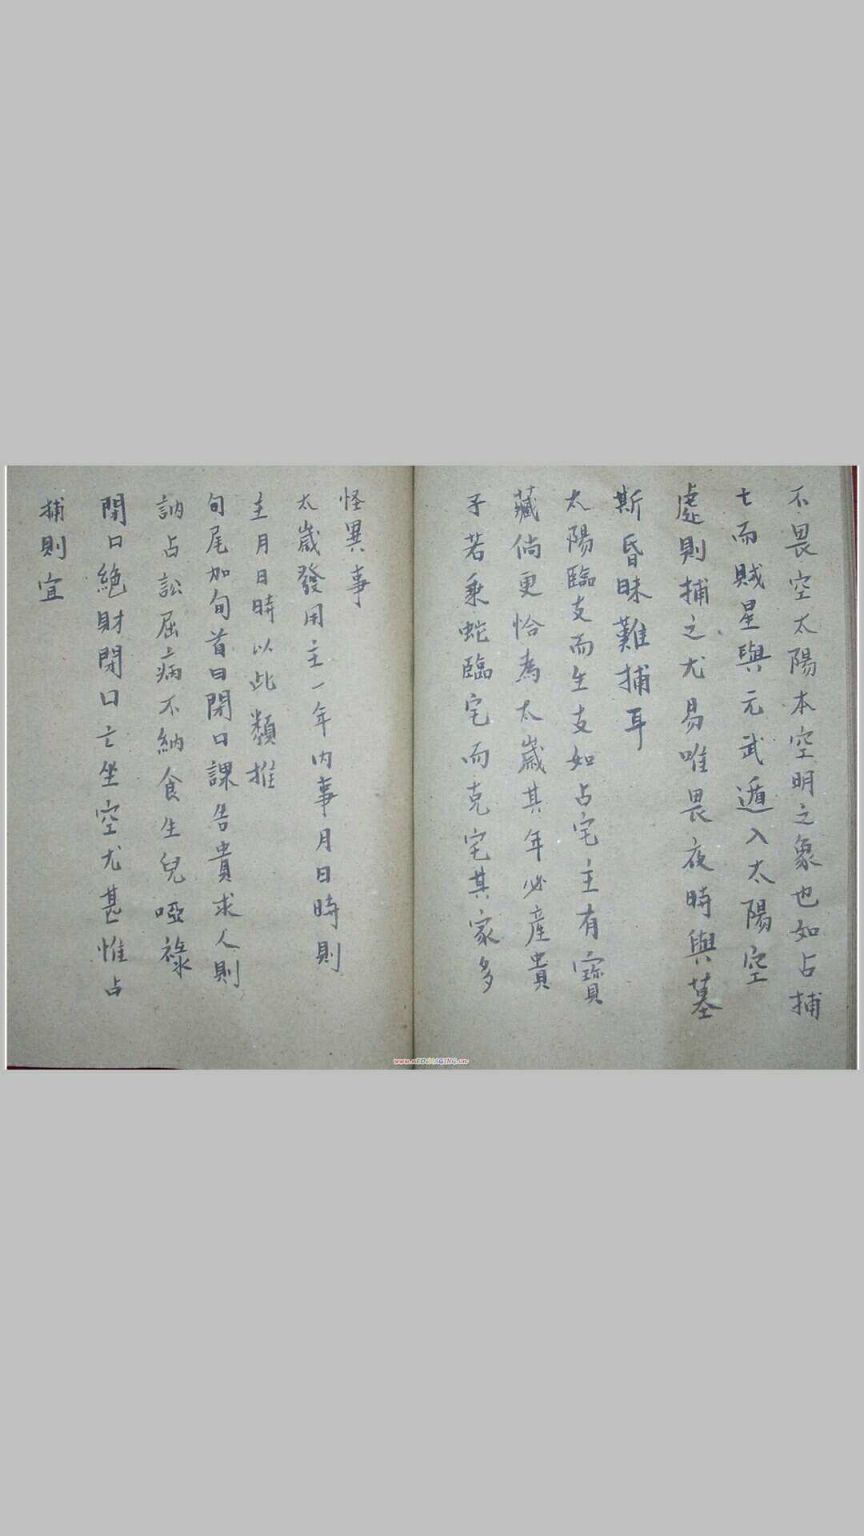 不畏空太陽本空明之象也如占捕
亡而賊星與元武遁入太陽空
處則捕之尤易唯畏夜時與墓
斯昏昧難捕耳
太陽臨支而生支如占宅主有寶
藏倘更恰為太歲其年必產貴
子若乘蛇臨宅而克宅其家多
怪異事
太歲發用主一年內事月日時則
主月日時以此類推
旬尾加旬首曰閉口課告貴求人則
訥占訟屈病不納食生兒啞祿
閉口絶財閉口亡坐空尤甚惟占
捕則宜